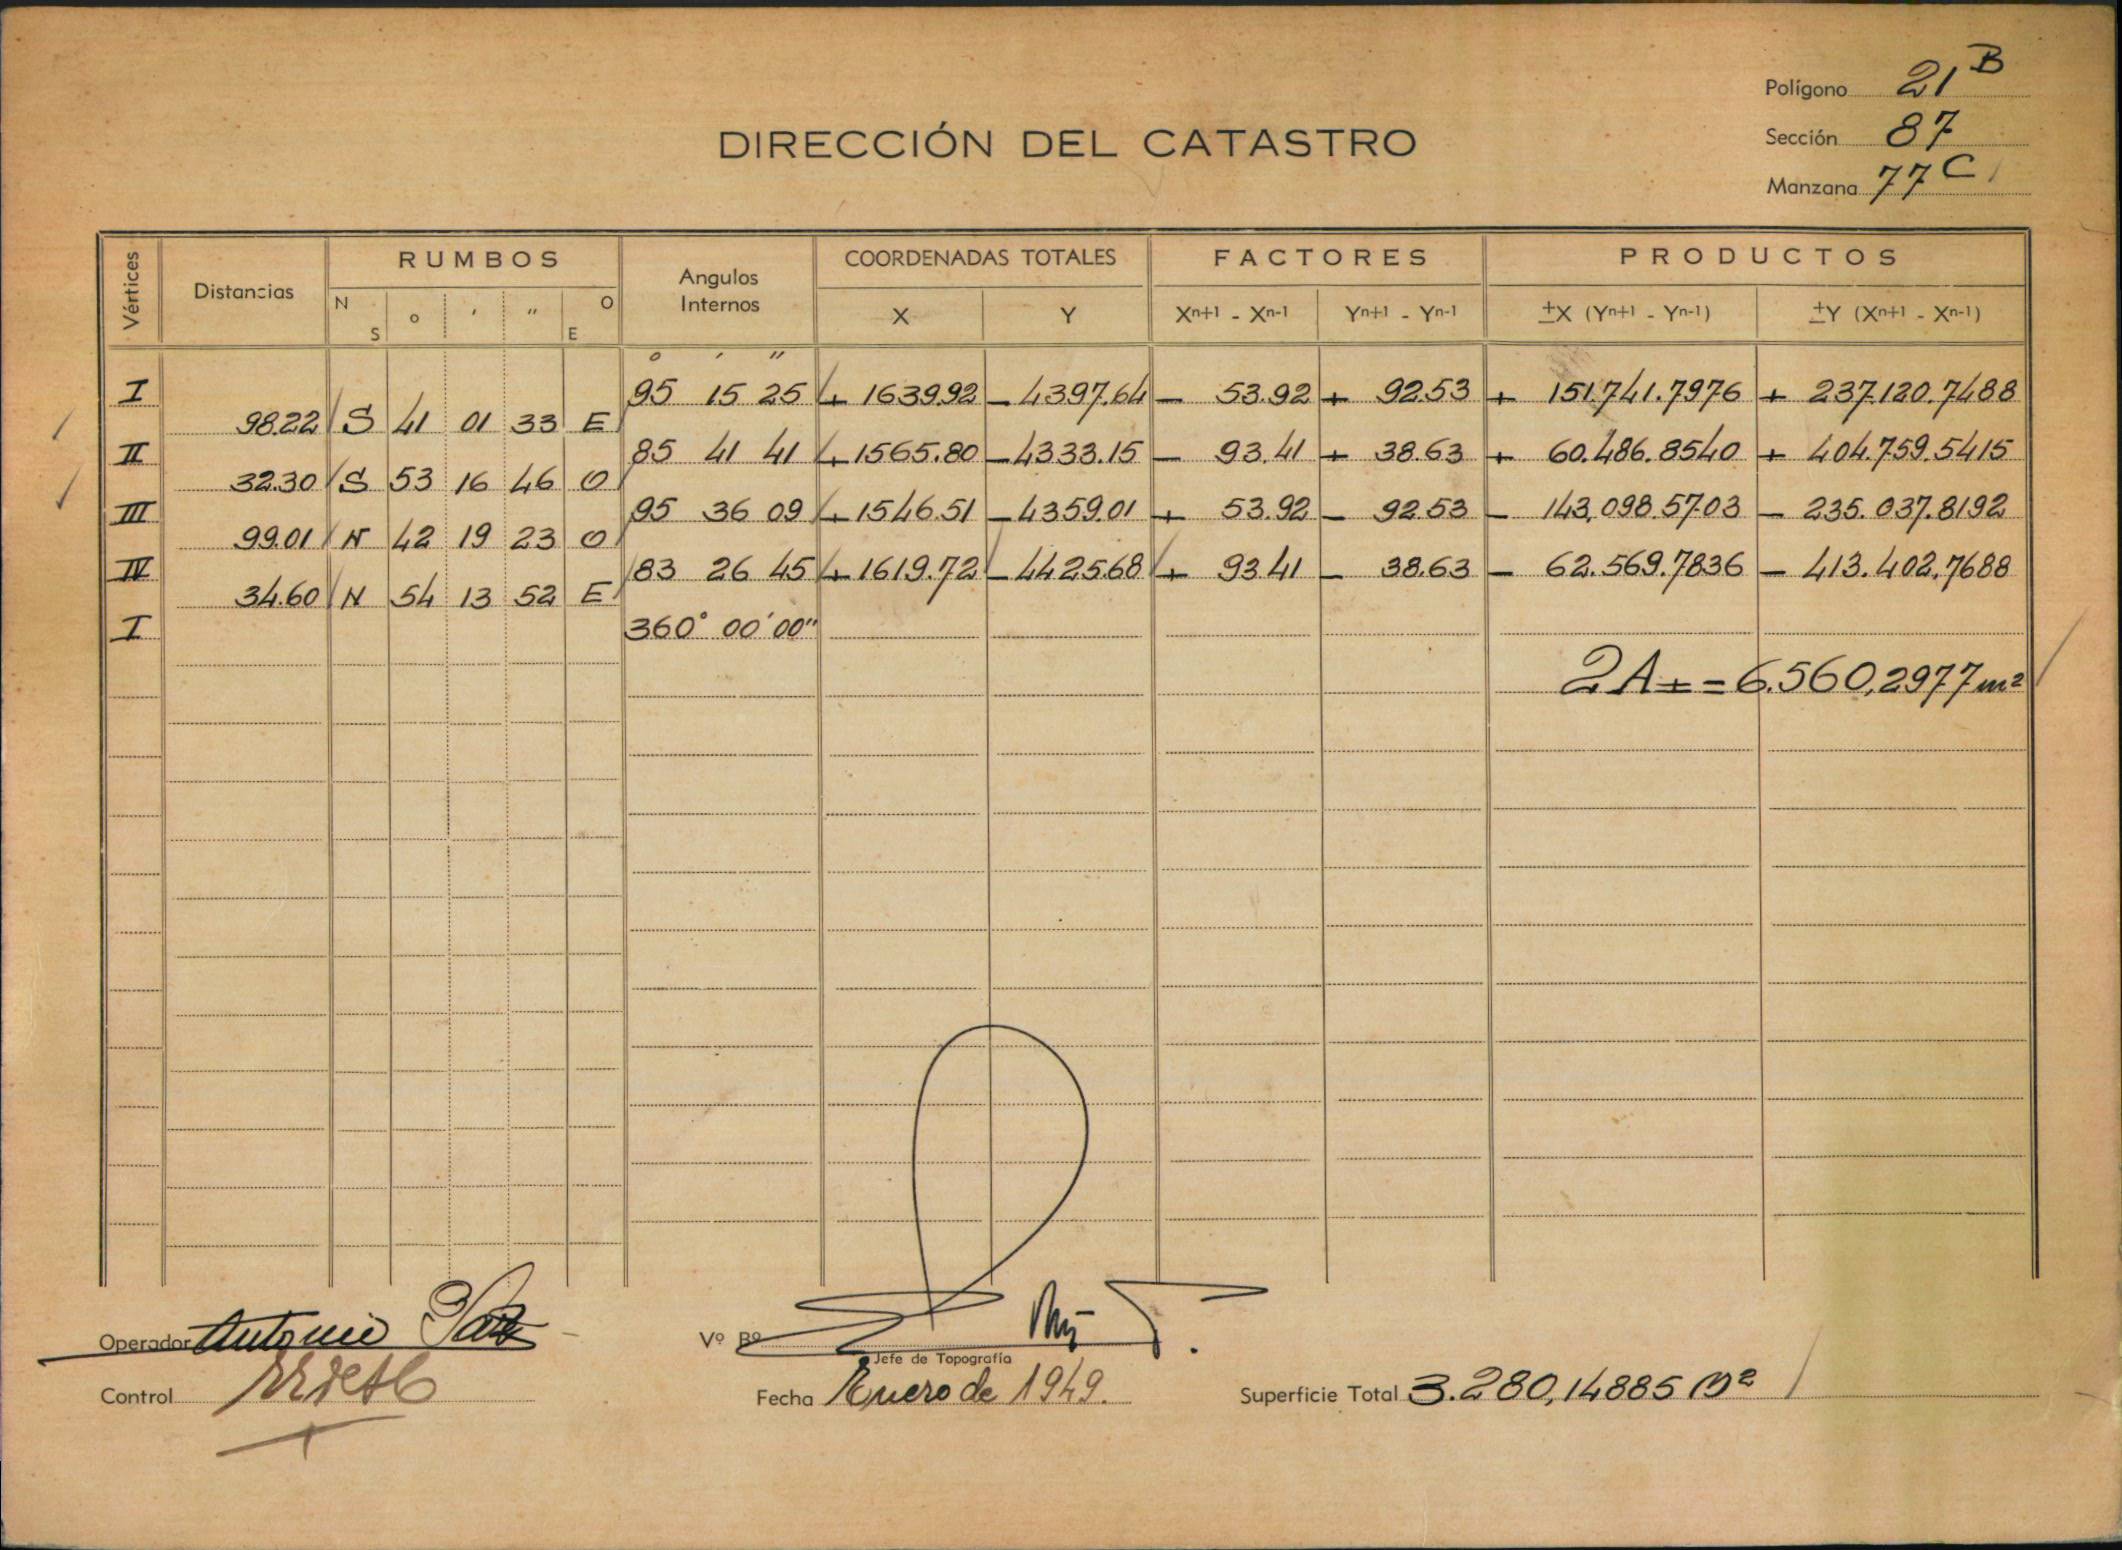 Polígono 21 B
DIRECCIÓN DEL CATASTRO
Sección 87
Manzana 77 C
Vértices Distancias RUMBOS Angulos Internos COORDENADAS TOTALES FACTORES PRODUCTOS
N S o ' " O E X Y Xn+1 - Xn-1 Yn+1 - Yn-1 ±X (Yn+1 - Yn-1) ±Y (Xn+1 - Xn-1)
o ' "
I 95 15 25 + 1639.92 - 4397.64 - 53.92 + 92.53 + 151.741.7976 + 237.120.7488
98.22 S 41 01 33 E
II 85 41 41 + 1565.80 - 4333.15 - 93.41 + 38.63 + 60.486.8540 + 404.759.5415
32.30 S 53 16 46 O
III 95 36 09 + 1546.51 - 4359.01 + 53.92 - 92.53 - 143,098.5703 - 235.037.8192
99.01 N 42 19 23 O
IV 83 26 45 + 1619.72 - 4425.68 + 93.41 - 38.63 - 62.569.7836 - 413.402,7688
34.60 N 54 13 52 E
I 360° 00' 00"
2A ± = 6.560,2977 m²
Operador Antonio
Vº Bº
Jefe de Topografía
Control
Fecha Enero de 1949.
Superficie Total 3.280,14885 m²